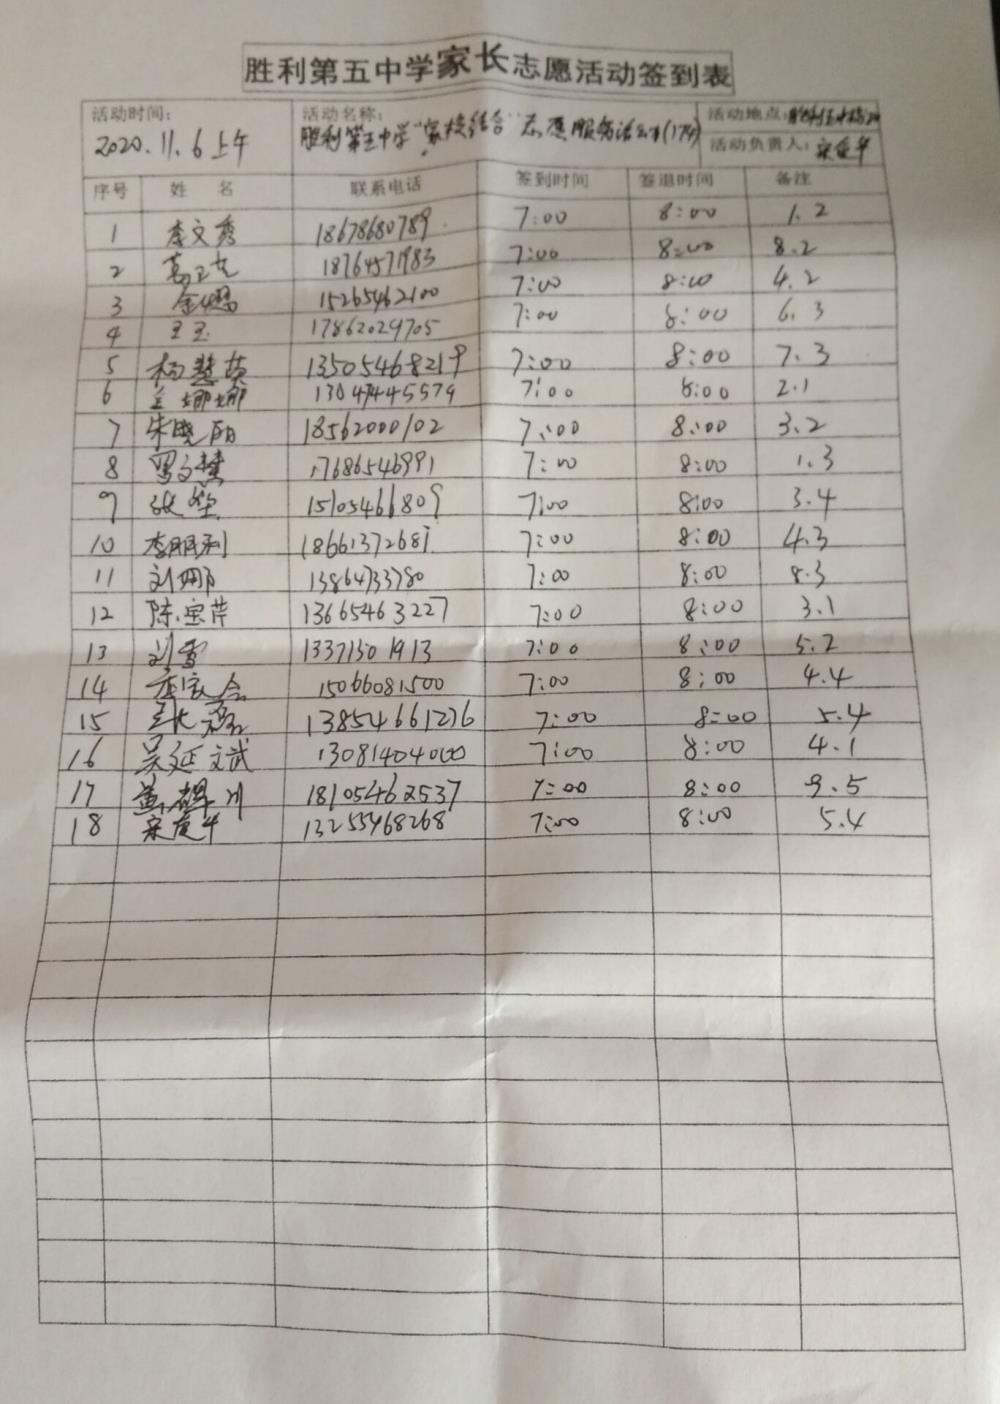 胜利第五中学家长志愿活动签到表
活动时间: 活动名称: 活动地点:
2020.11.6上午 胜利第五中学"家校结合"志愿服务活动(174) 活动负责人:
序号 姓 名 联系电话 签到时间 签退时间 备注
1 李文秀 18678680789 7:00 8:00 1.2
2 18764571983 7:00 8:00 8.2
3 15265462100 7:00 8:00 4.2
4 王玉 17862029705 7:00 8:00 6.3
5 杨慧英 13505468219 7:00 8:00 7.3
6 兰娜娜 13047445579 7:00 8:00 2.1
7 朱晓阳 18562000102 7:00 8:00 3.2
8 17686546991 7:00 8:00 1.3
9 张华 15105466809 7:00 8:00 3.4
10 李朋利 18661372687 7:00 8:00 4.3
11 刘娜 13864733780 7:00 8:00 8.3
12 陈宝芹 13665463227 7:00 8:00 3.1
13 刘雪 13371501913 7:00 8:00 5.2
14 15066081500 7:00 8:00 4.4
15 13854661276 7:00 8:00 5.4
16 吴延文武 13081404000 7:00 8:00 4.1
17 18105462537 7:00 8:00 9.5
18 13255468268 7:00 8:00 5.4